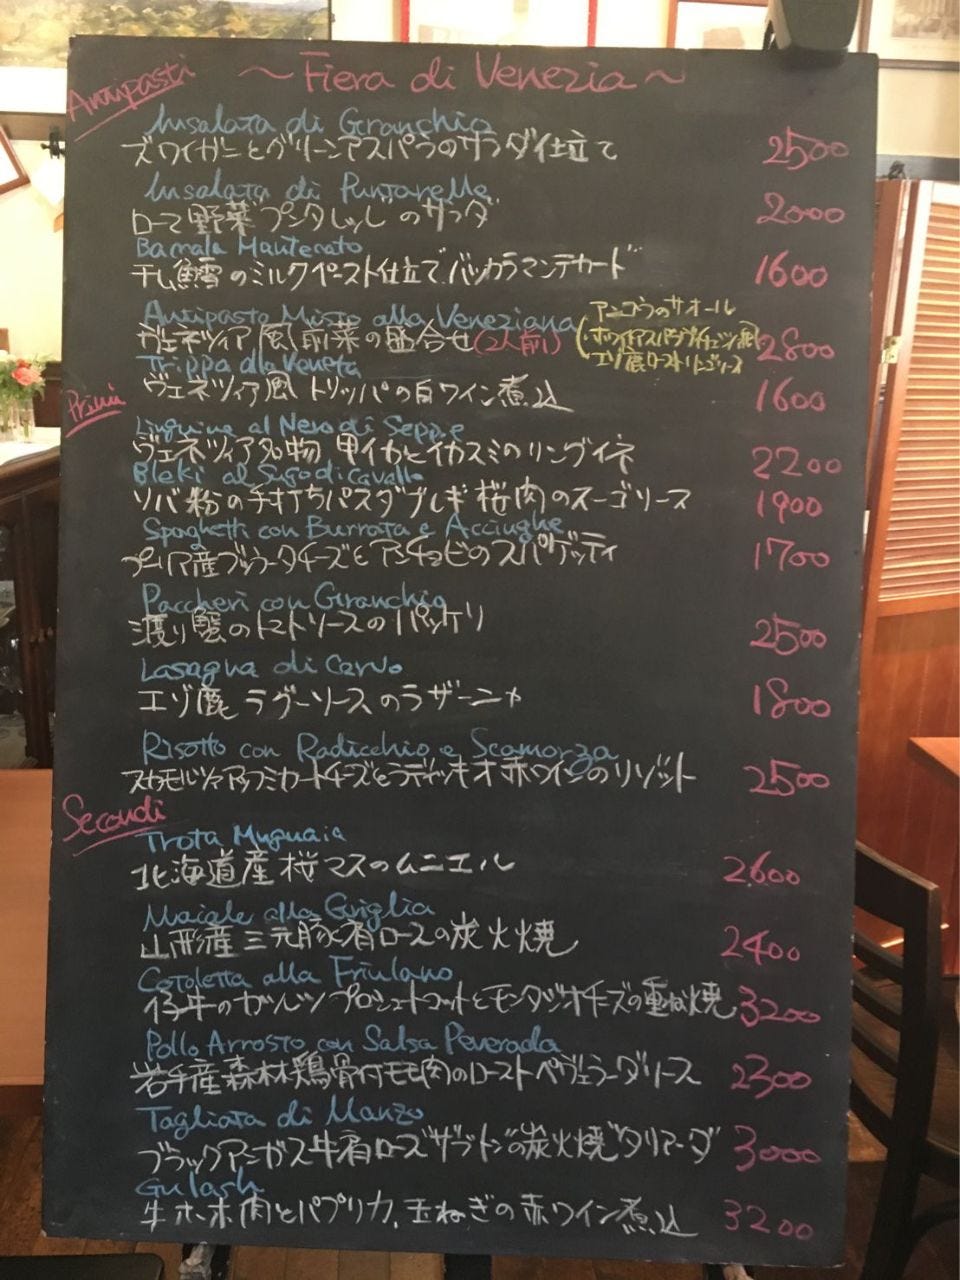 Antipasti
~ Fiera di Venezia ~
Insalata di Granchio
ズワイガニとグリーンアスパラのサラダ仕立て 2500
Insalata di Puntarelle
ローマ野菜"プンタレッレ"のサラダ 2000
Bamala Mantecato
干し鱈のミルクペースト仕立て バッカラマンテカート 1600
Antipasto Misto alla Veneziana
ヴェネツィア風前菜の盛合せ(2人前) 2800
アンコウのサオール
・ホワイトアスパラ
エゾ鹿ロースト
Trippa alla Veneta
ヴェネツィア風 トリッパの白ワイン煮込 1600
Primi
Linguine al Nero di Seppie
ヴェネツィア名物 甲イカとイカスミのリングイネ 2200
Bleki al Sugo di Cavallo
ソバ粉の手打ちパスタ ブレギ 桜肉のスーゴソース 1900
Spaghetti con Burrata e Acciughe
プーリア産ブッラータチーズとアンチョビのスパゲッティ 1700
Paccheri con Granchio
渡り蟹のトマトソースのパッケリ 2500
Lasagna di Cervo
エゾ鹿 ラグーソースのラザーニャ 1800
Risotto con Radicchio e Scamorza
スカモルツァアッフミカートチーズとラディッキオ 赤ワインのリゾット 2500
Secondi
Trota Mugnaia
北海道産 桜マスのムニエル 2600
Maiale alla Griglia
山形産 三元豚肩ロースの炭火焼 2400
Cotoletta alla Friulano
仔牛のカツレツ プロシュートコットとモンタジオチーズの重ね焼 3200
Pollo Arrosto con Salsa Peverada
岩手産 森林鶏骨付モモ肉のロースト ペヴェラーダソース 2300
Tagliata di Manzo
ブラックアンガス牛肩ロース"ザブトン"の炭火焼"タリアータ" 3000
Gulash
牛ホホ肉とパプリカ、玉ねぎの赤ワイン煮込 3200